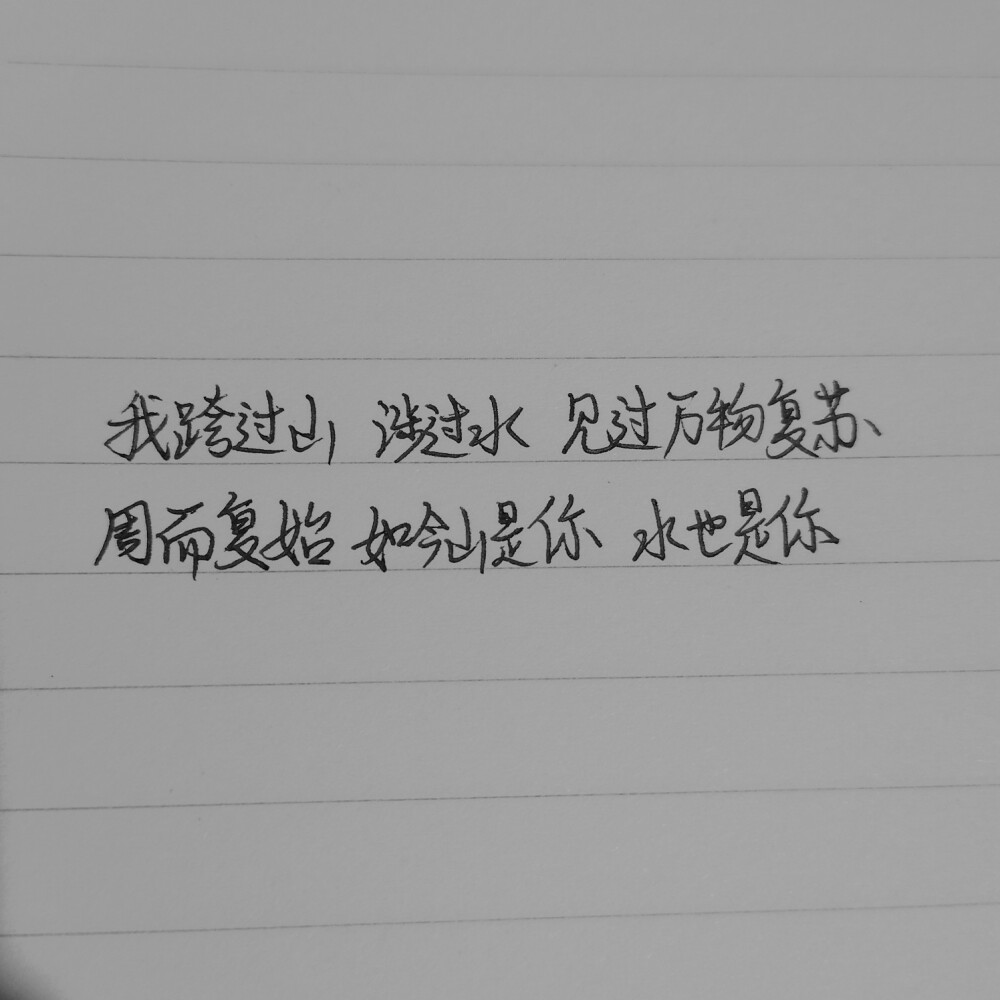 我跨过山 涉过水 见过万物复苏
周而复始 如今山是你 水也是你